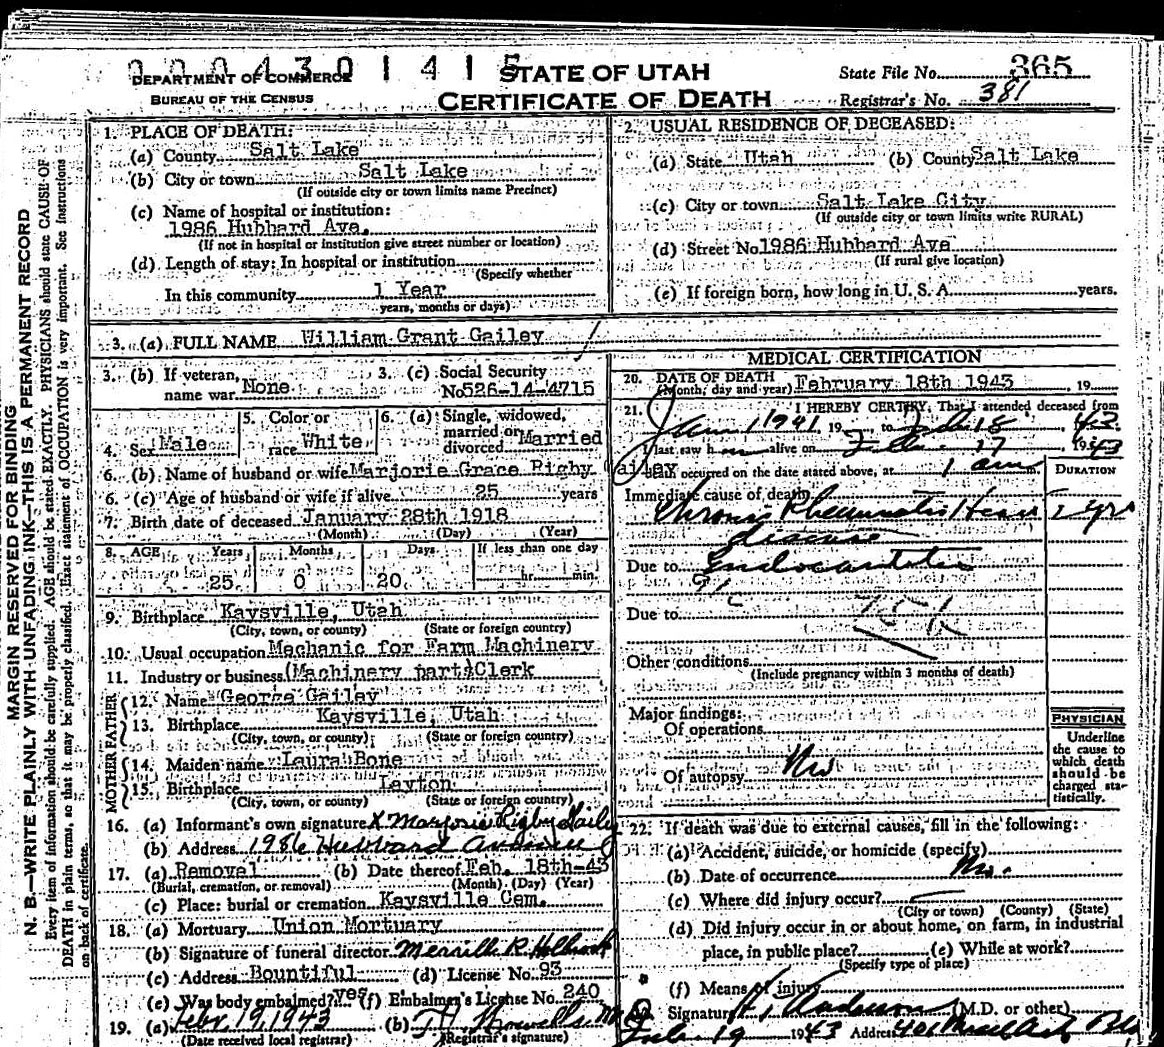 000430 1 4 1 5
DEPARTMENT OF COMMERCE
BUREAU OF THE CENSUS
STATE OF UTAH
CERTIFICATE OF DEATH
State File No. 365
Registrar's No. 381
MARGIN RESERVED FOR BINDING
N. B.—WRITE PLAINLY WITH UNFADING INK—THIS IS A PERMANENT RECORD
Every item of information should be carefully supplied. AGE should be stated EXACTLY. PHYSICIANS should state CAUSE OF
DEATH in plain terms, so that it may be properly classified. Exact statement of OCCUPATION is very important. See Instructions
on back of certificate.
1. PLACE OF DEATH:
(a) County Salt Lake
(b) City or town Salt Lake
(If outside city or town limits name Precinct)
(c) Name of hospital or institution:
1986 Hubbard Ave.
(If not in hospital or institution give street number or location)
(d) Length of stay: In hospital or institution
(Specify whether
In this community 1 Year
years, months or days)
2. USUAL RESIDENCE OF DECEASED:
(a) State Utah (b) County Salt Lake
(c) City or town Salt Lake City
(If outside city or town limits write RURAL)
(d) Street No. 1986 Hubbard Ave
(If rural give location)
(e) If foreign born, how long in U. S. A. years.
3. (a) FULL NAME William Grant Gailey
3. (b) If veteran, name war None
3. (c) Social Security No 526-14-4715
4. Sex Male
5. Color or race White
6. (a) Single, widowed, married or divorced Married
6. (b) Name of husband or wife Marjorie Grace Rigby Gailey
6. (c) Age of husband or wife if alive 25 years
7. Birth date of deceased January 28th 1918
(Month) (Day) (Year)
8. AGE Years Months Days If less than one day
25 0 20 hr. min.
9. Birthplace Kaysville, Utah
(City, town, or county) (State or foreign country)
10. Usual occupation Mechanic for Farm Machinery
11. Industry or business (Machinery parts) Clerk
FATHER
12. Name George Gailey
13. Birthplace Kaysville, Utah
(City, town, or county) (State or foreign country)
MOTHER
14. Maiden name Laura Bone
15. Birthplace Layton
(City, town, or county) (State or foreign country)
16. (a) Informant's own signature X Marjorie Rigby Gailey
(b) Address 1986 Hubbard Avenue
17. (a) Removal (b) Date thereof Feb. 18th-43
(Burial, cremation, or removal) (Month) (Day) (Year)
(c) Place: burial or cremation Kaysville Cem.
18. (a) Mortuary Union Mortuary
(b) Signature of funeral director Merrille R. Holbrook
(c) Address Bountiful (d) License No. 93
(e) Was body embalmed? yes (f) Embalmer's License No. 240
19. (a) Febr 19, 1943 (b) T. J. Howells M.D.
(Date received local registrar) (Registrar's signature)
MEDICAL CERTIFICATION
20. DATE OF DEATH
(Month, day and year) February 18th 1943, 19
21. I HEREBY CERTIFY, That I attended deceased from
Jan 1 1941 19 , to Feb 18 , 1943
I last saw h im alive on Feb 17 , 1943
death occurred on the date stated above, at 1 am
DURATION
Immediate cause of death
Chronic Rheumatic Heart 2 yrs
disease
Due to Endocarditis
Due to
Other conditions
(Include pregnancy within 3 months of death)
Major findings:
Of operations
Of autopsy No
PHYSICIAN
Underline
the cause to
which death
should be
charged sta-
tistically.
22. If death was due to external causes, fill in the following:
(a) Accident, suicide, or homicide (specify)
(b) Date of occurrence No.
(c) Where did injury occur?
(City or town) (County) (State)
(d) Did injury occur in or about home, on farm, in industrial
place, in public place? (e) While at work?
(Specify type of place)
(f) Means of injury
Signature Anderson (M.D. or other)
Feb 19 1943 Address